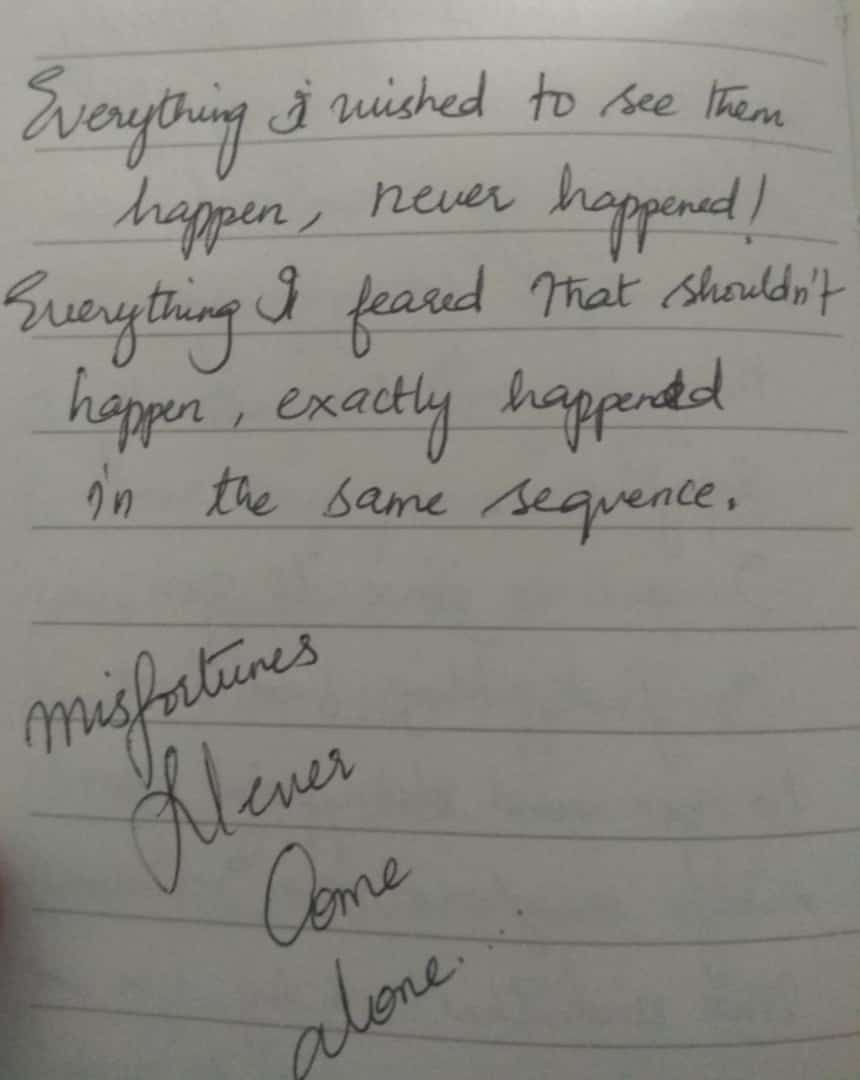 Everything I wished to see them
happen, never happened!
Everything I feared that shouldn't
happen, exactly happened
in the same sequence.
misfortunes
Never
Come
alone....